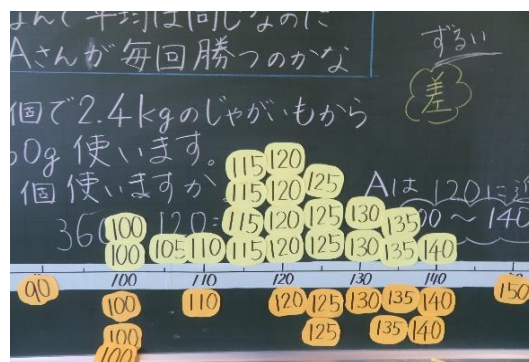 なんで平均は同じなのに
Aさんが毎回勝つのかな
ずるい
差
個で2.4kgのじゃがいもから
60g使います。
個使いますか
Aは120に近
00〜140
360
120
115 120
115 120 125
100 115 120 125 130 135
100 105 110 115 120 125 130 135 140
100 110 120 130 140
90 100 110 120 125 130 135 140 150
100 125 135 140
100